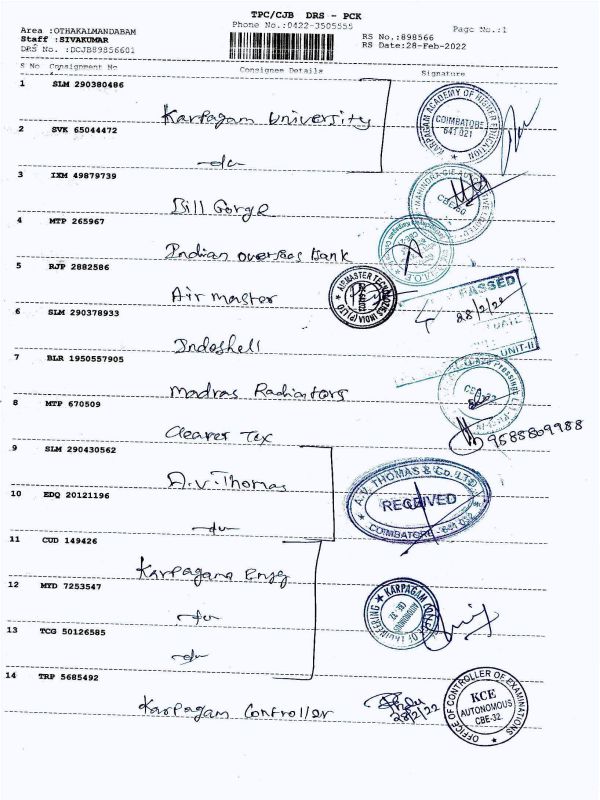 TPC/CJB DRS - PCK
Phone No.:0422-3505555
Page No.:1
Area :OTHAKALMANDABAM
Staff :SIVAKUMAR
DRS No. :DCJB89856601
RS No.:898566
RS Date:28-Feb-2022
S No Consignment No Consignee Details Signature
1 SLM 290380486
Karpagam University
KARPAGAM ACADEMY OF HIGHER EDUCATION
COIMATOBE
641 021
2 SVK 65044472
-do-
3 IXM 49879739
Bill Gorge
4 MTP 265967
Indian overseas Bank
5 RJP 2882586
Air master
AIRMASTER TECHNOLOGIES INDIA (P) LTD
PASSED
28/2/22
DATE
UNIT-II
6 SLM 290378933
Indoshell
7 BLR 1950557905
Madras Radiators
8 MTP 670509
Cleaver Tex
9588809988
9 SLM 290430562
A.V. Thomas
A.V. THOMAS & Co. LTD
RECEIVED
COIMBATORE - 641 032
10 EDQ 20121196
-do-
11 CUD 149426
Karpagam Engg
12 MYD 7253547
-do-
KARPAGAM COLLEGE OF ENGINEERING
AUTONOMOUS
CBE 32
13 TCG 50126585
-do-
14 TRP 5685492
Karpagam Controller
28/2/22
OFFICE OF CONTROLLER OF EXAMINATIONS
KCE
AUTONOMOUS
CBE-32.